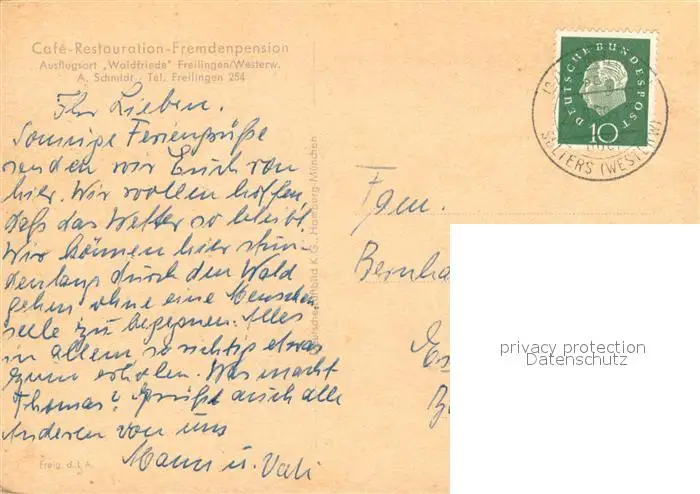 Café-Restauration-Fremdenpension
Ausflugsort „Waldfriede" Freilingen/Westerw.
A. Schmidt, Tel. Freilingen 254
Ihr Lieben.
Sonnige Feriengrüße
senden wir Euch von
hier. Wir wollen hoffen,
daß das Wetter so bleibt.
Wir können hier stun-
denlang durch den Wald
gehen ohne eine Menschen
seele zu begegnen. Alles
in allem so richtig etwas
zum erholen. Was macht
Thomas? Grüßt auch alle
Anderen von uns
Mann u. Vati
Freig. d. L. A.
Deutsche Luftbild K. G., Hamburg-München
DEUTSCHE BUNDESPOST
10
SELTERS (WESTERW)
Fam.
Bernha
privacy protection
Datenschutz